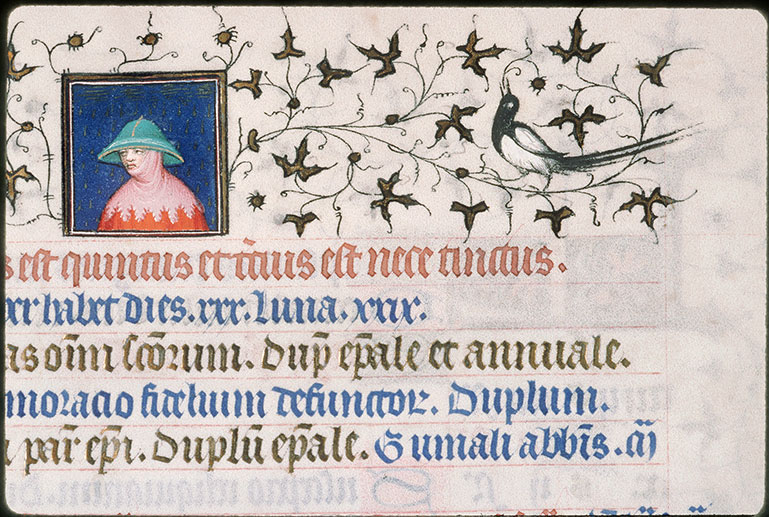 s est quintus et t̄cius est nece tinctus.
er habet dies. xxx. Luna. xxix.
as om̄i scōrum. Dup̄ ep̄ale et annuale.
moracio fidelium defunctoꝝ. Duplum.
par̄ ep̄i. Duplū ep̄ale. Gumali abb̄is.